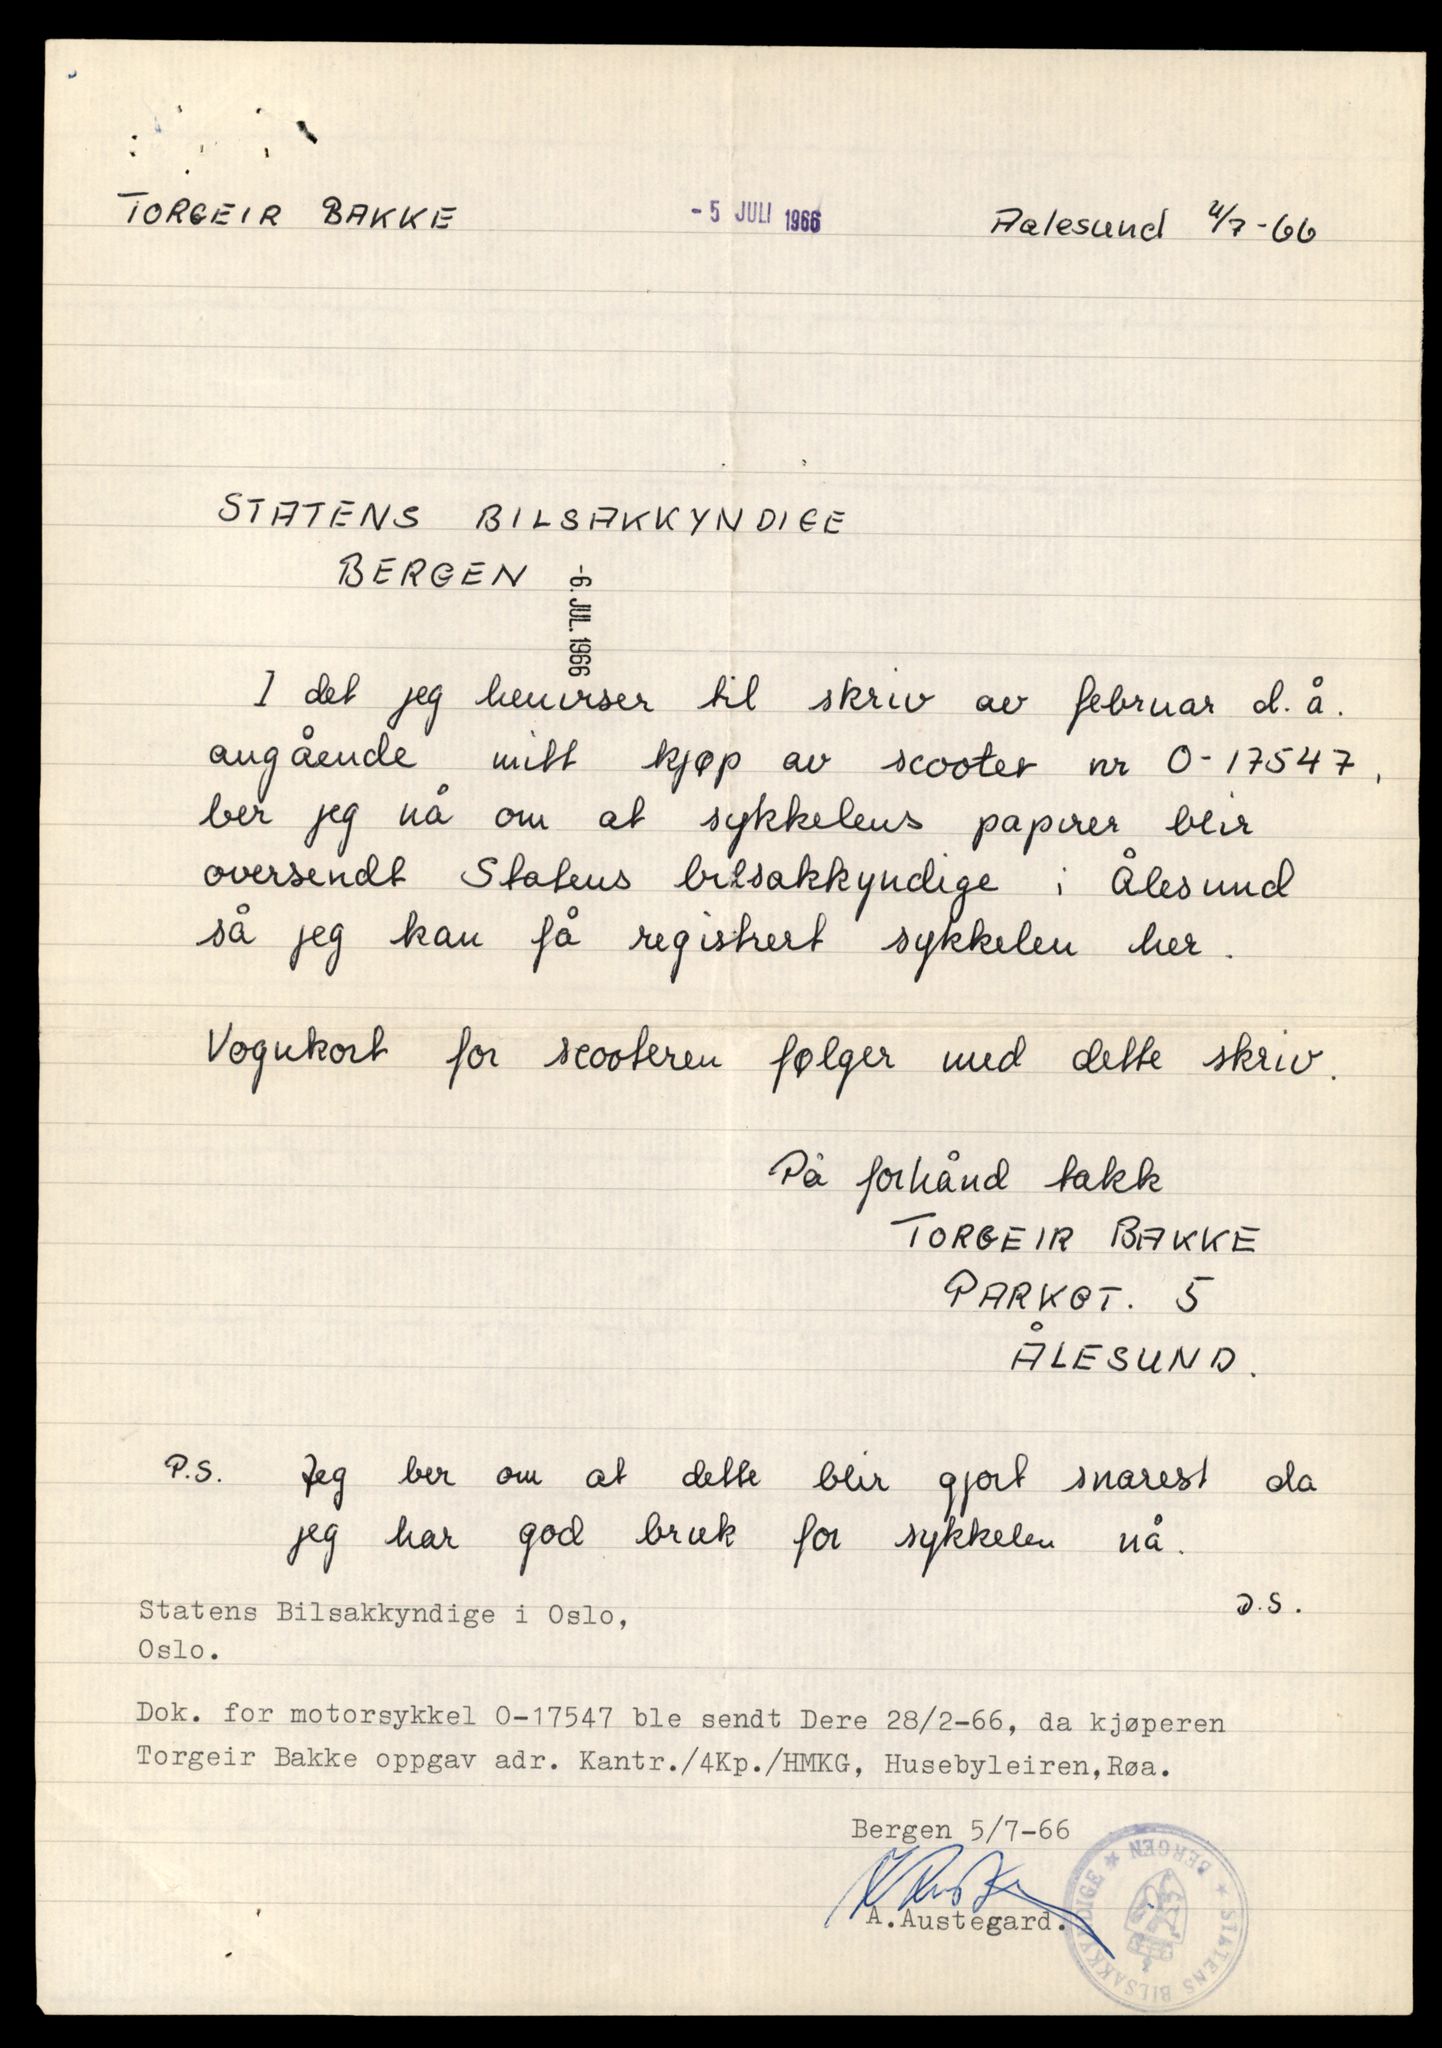 TORGEIR BAKKE
- 5 JULI 1966
Aalesund 4/7-66
STATENS BILSAKKYNDIGE
BERGEN
-6. JUL. 1966
I det jeg henviser til skriv av februar d.å.
angående mitt kjøp av scooter nr O-17547,
ber jeg nå om at sykkelens papirer blir
oversendt Statens bilsakkyndige i Ålesund
så jeg kan få registrert sykkelen her.
Vognkort for scooteren følger med dette skriv.
På forhånd takk
TORGEIR BAKKE
PARKGT. 5
ÅLESUND.
P.S. Jeg ber om at dette blir gjort snarest da
jeg har god bruk for sykkelen nå.
D.S.
Statens Bilsakkyndige i Oslo,
Oslo.
Dok. for motorsykkel O-17547 ble sendt Dere 28/2-66, da kjøperen
Torgeir Bakke oppgav adr. Kantr./4Kp./HMKG, Husebyleiren,Røa.
Bergen 5/7-66
A.Austegard.
★ STATENS BILSAKKYNDIGE ★ BERGEN